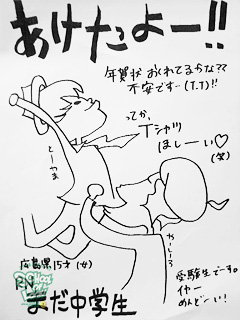 あけたよー!!
年賀状 おくれてるかな??
不安です…(T.T)!!
ってか、
Tシャツ
ほしーい♡
(笑)
とーつま
やーしーろ
広島県15才(女)
RN
まだ中学生
受験生です。
イヤー
めんどーい!